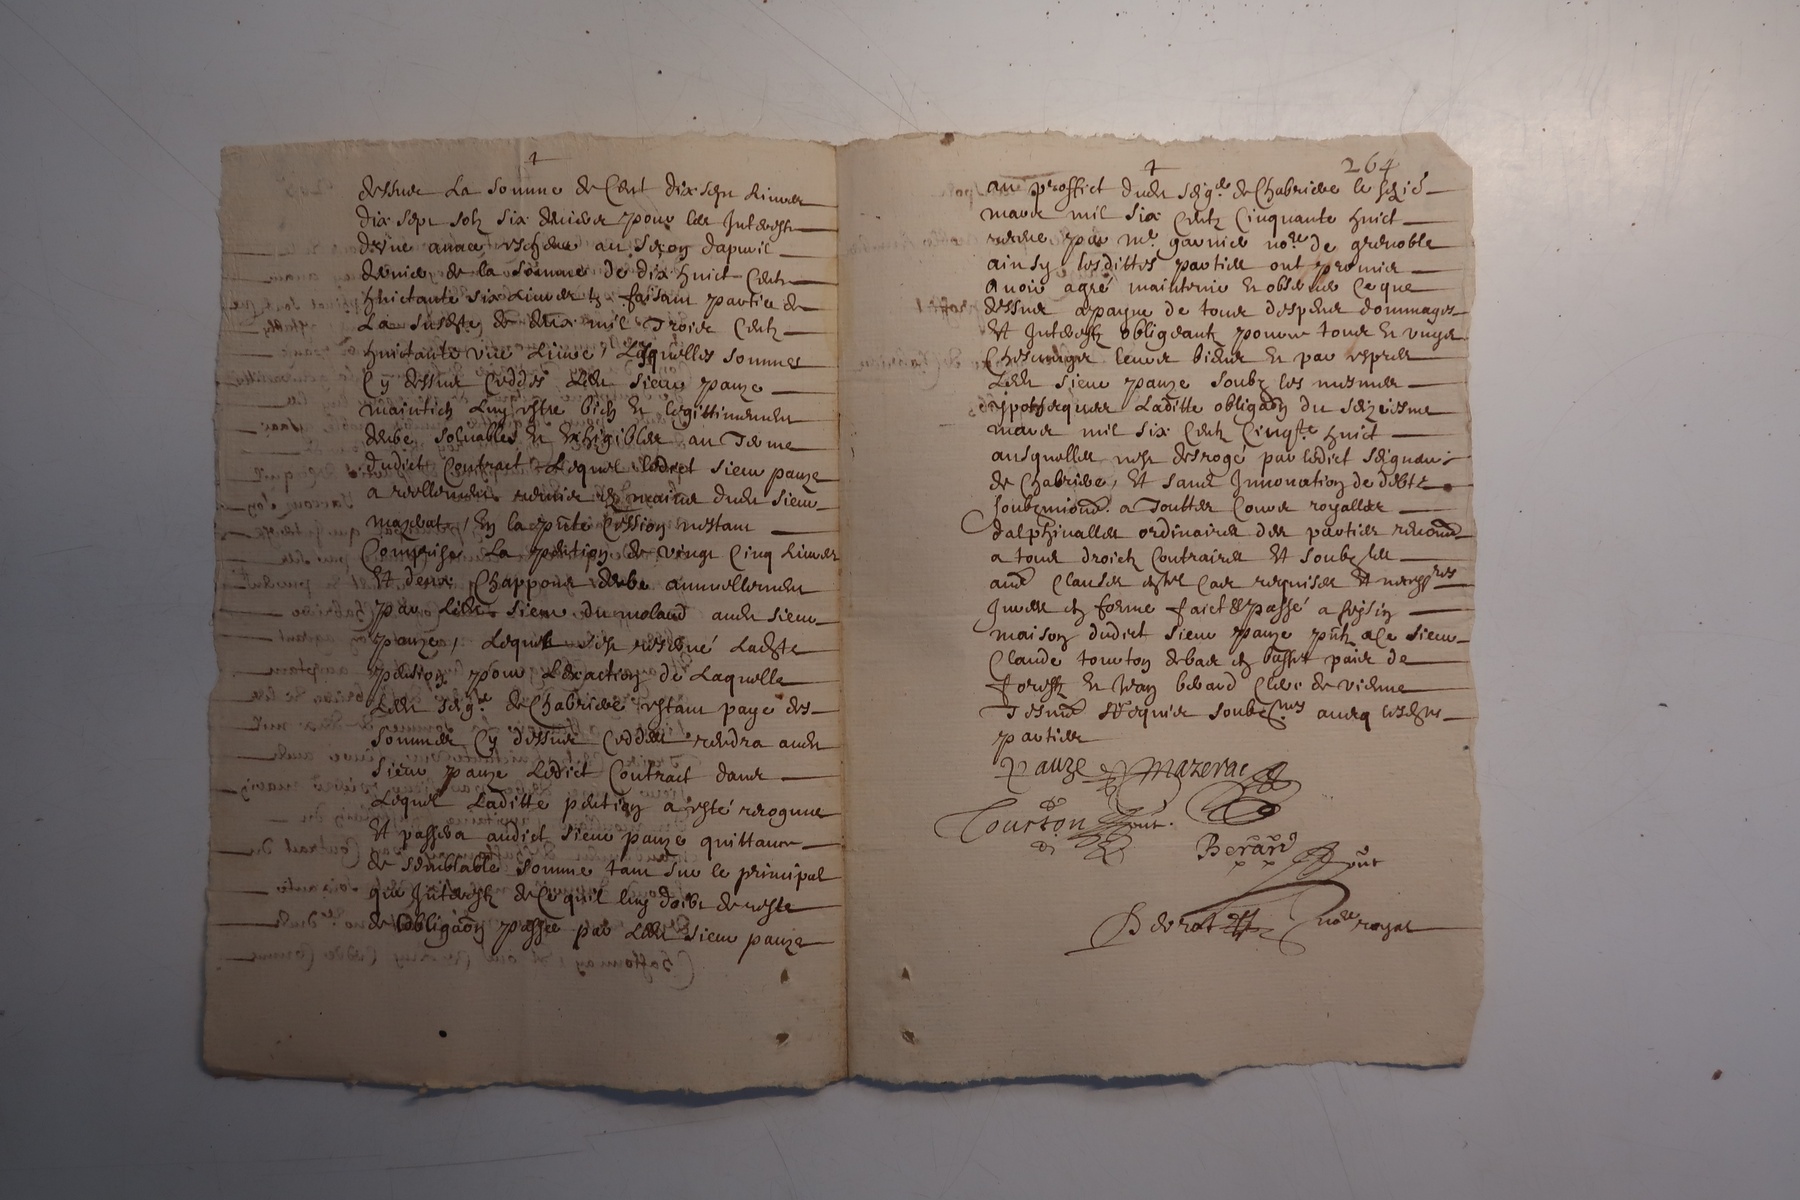 dessus La somme de Cent dix sept Livres
dix sept solz six deniers pour les Interestz
d'une année escheue au de dapvril
dernier de la somme de dix huict Centz
huictante six Livres faisant partie de
La susdte de deux mil Trois Centz
huictante une Livre, Lesquelles sommes
Cy dessus Ceddés Ledt sieur pauze
maintien Luy estre bien et legittimement
deube soluables et Exhigibles au Terme
dudict Contract Lequel ledict sieur pauze
a reellement remis ez mains dudt sieur
mazerat, En la pnte Cession restant
Comprise La pention de vingt Cinq Livres
Et deux Chappons deube annuellement
par Ledt sieur du molard audt sieur
pauze, Lequel s'est reservé Ladte
pention pour L'exaction de Laquelle
Ledt seigr de Chabrieres estant payé des
sommes Cy dessus Ceddées rendra audt
sieur pauze Ledict Contract dans
Lequel Laditte pention a esté recognue
Et passera audict sieur pauze quittance
de semblable somme tant sur le principal
que Interestz de Ce qu'il luy doibt de reste
de lobligaon passée par Ledt sieur pauze
264
au proffict dudt seigr de Chabrieres le
mars mil six Centz Cinquante huict
receue par me garnier nore de grenoble
ainsy lesdittes parties ont promis
avoir agré maintenir et observer Ce que
dessus a payne de tous despens dommages
Et Interestz obligeantz pour tous et
leurs biens et par exprès
Ledt sieur pauze soubz les mesmes
ypotheques Laditte obligaon du seizeisme
mars mil six Centz Cinqte huict
ausquelles n'est desrogé par ledict seigneur
de Chabrieres, Et sans Innovation de debte
a Touttes Cours royalles
dalphinalles ordinaires des parties
a tous droictz Contraires Et soubz les
autres Clauses requises Et necessres
en forme faict & passé a
maison dudict sieur pauze pntz a Ce sieur
Claude tourton en basse paix de
forestz Et Jean berard Clerc de vienne
Tesmoins Requis soubznes avecq lesdtes
parties
Pauze Mazerat
Tourton pnt.
Berard pnt
nore royal